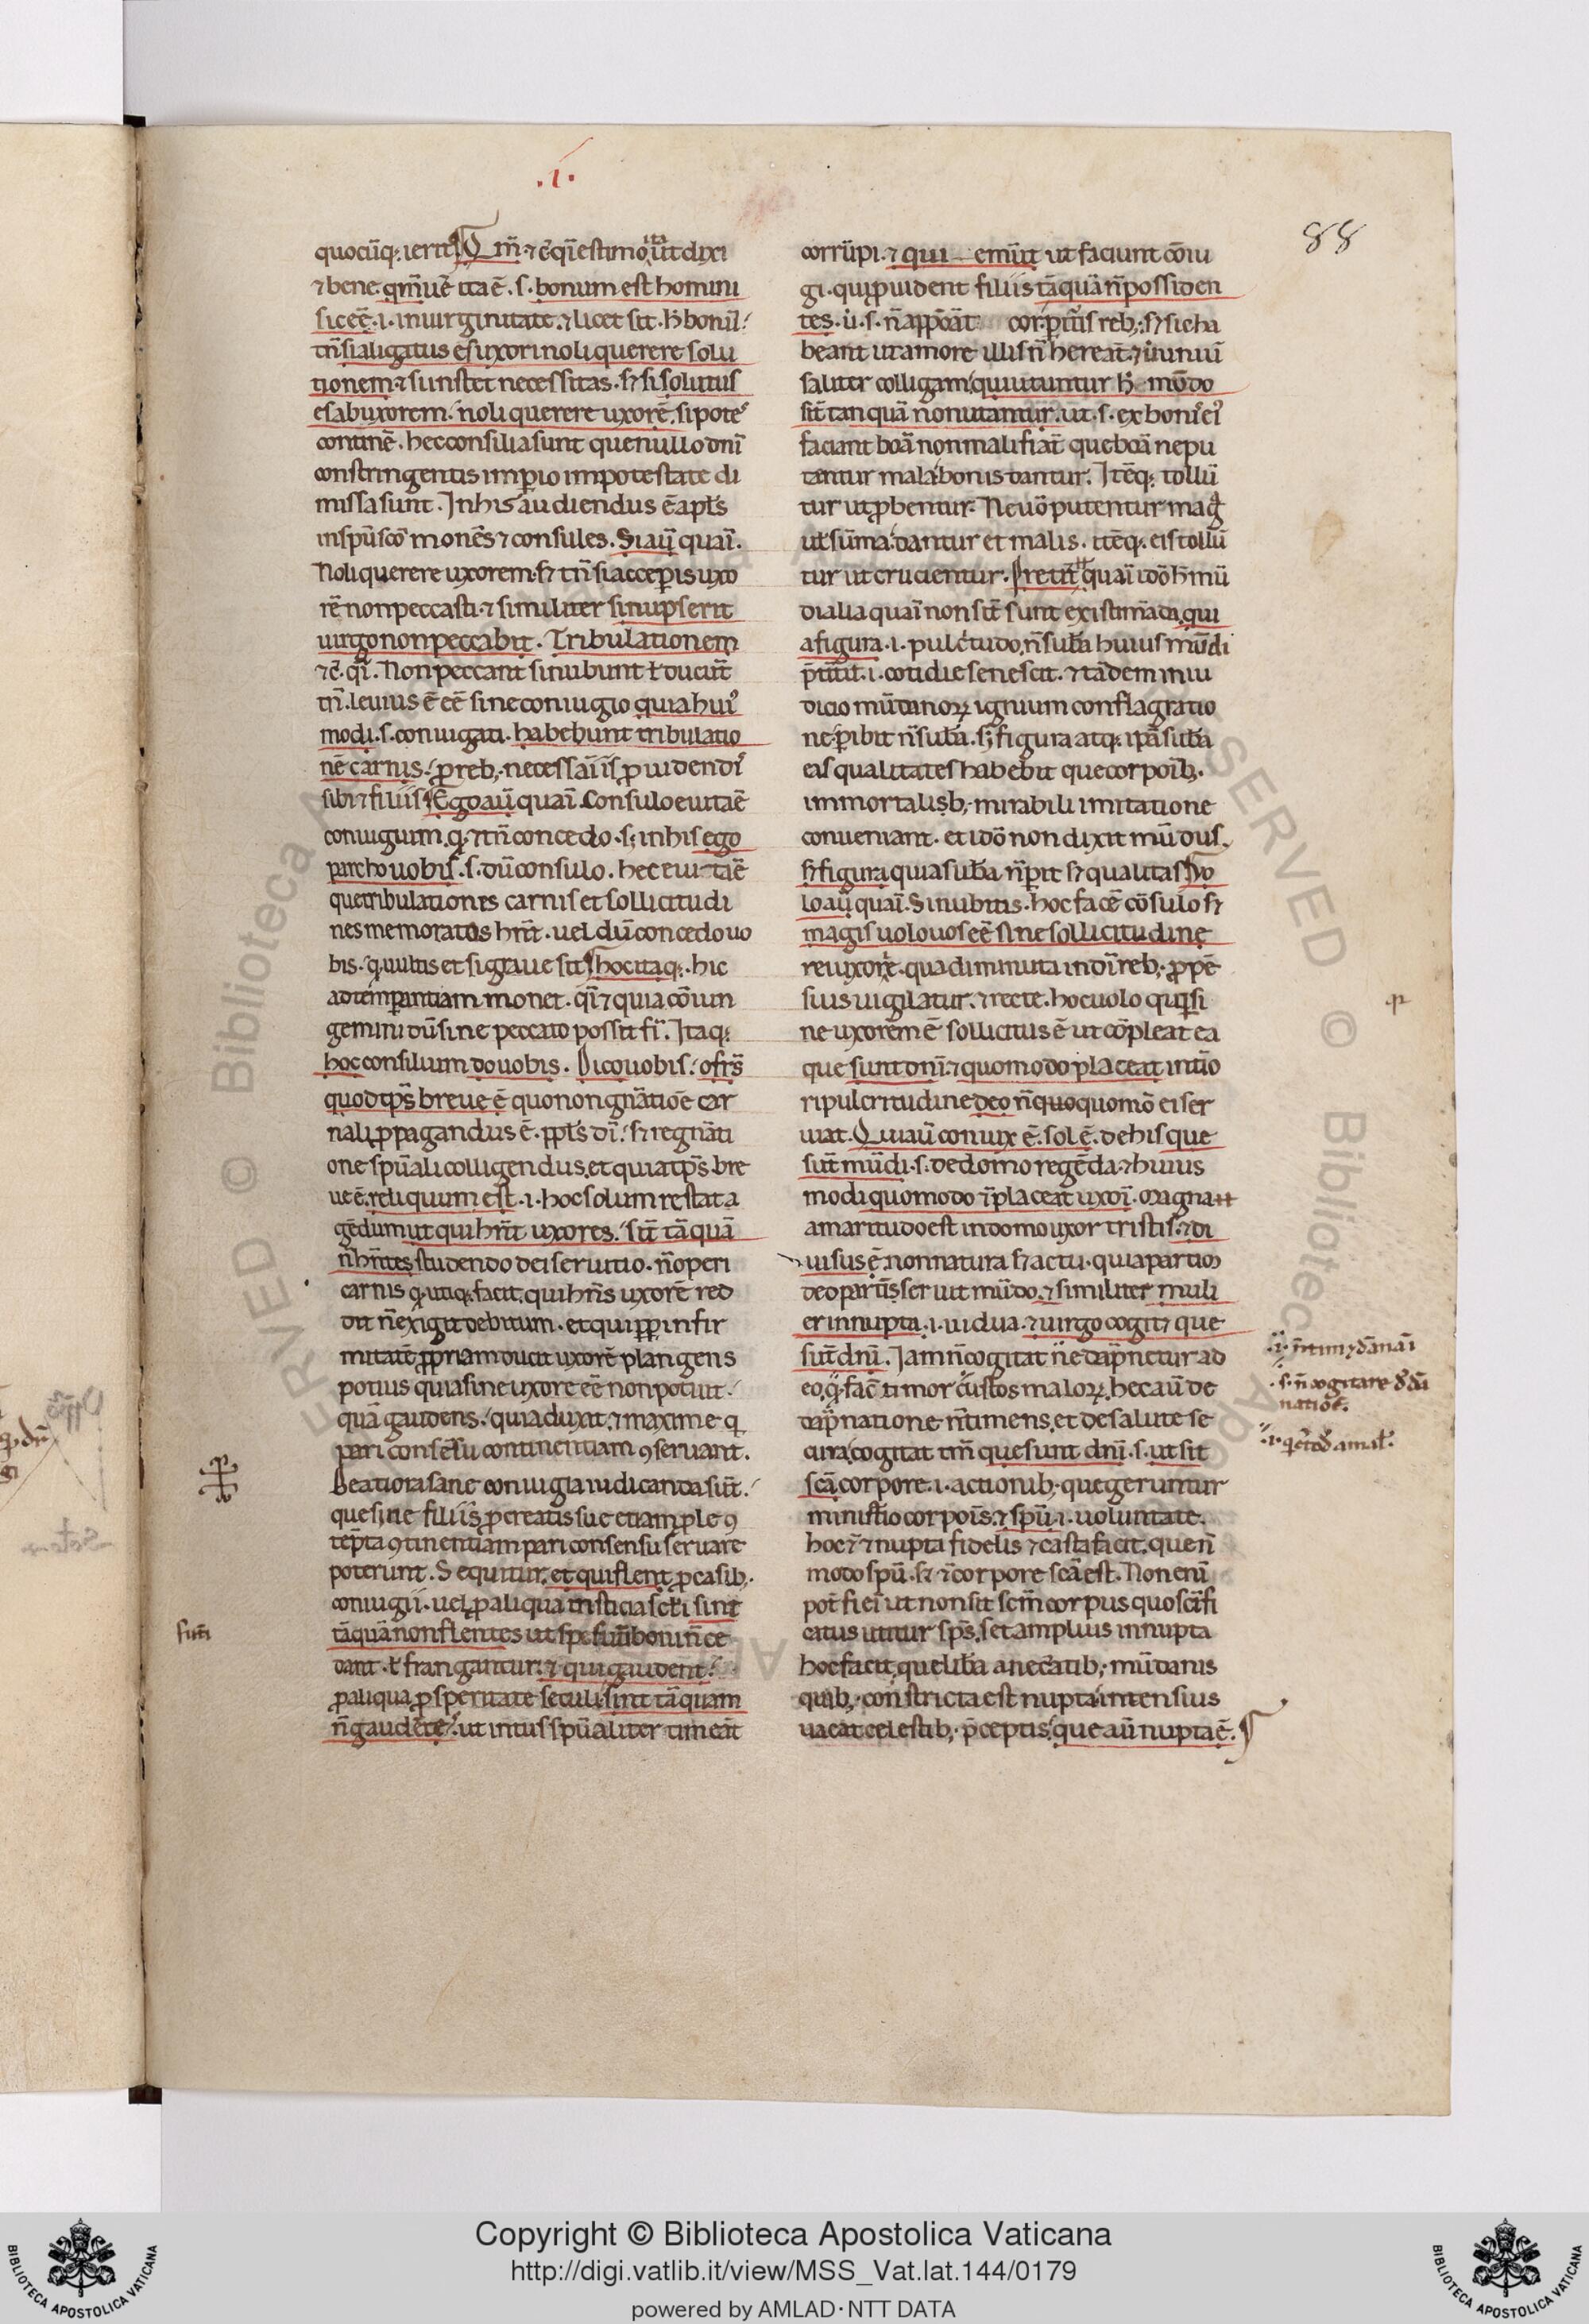 .i.
88
quocūq; ierit Qm̄ ⁊ c̄ qī estimo ita ut dixi
⁊ bene qm̄ uē ita ē . s . bonum est homini
sic eē . i . in uirginitate . ⁊ licet sit . h̄ bonū
tn̄ si aligatus es uxori noli querere solu
tionem ⁊ si instet necessitas . sꝫ si solutus
es ab uxorem . noli querere uxorē . si potes
continē . hec consilia sunt que nullo dn̄i
constringentis imperio in potestate di
missa sunt . In his audiendus ē apls
in spū scō monēs ⁊ consules . Si aū quaī .
Noli querere uxorem . sꝫ tn̄ si acceperis uxo
rē non peccasti . ⁊ similiter si nupserit
uirgo non peccabit . Tribulationem
⁊ c̄ . qī . Non peccant si nubunt ł ducūt
tn̄ . leuius ē eē sine coniugio quia hui
modi . s . coniugati . habebunt tribulatio
nē carnis . p reb; necessariis prouidendis
sibi ⁊ filiis Ego aū quaī . Consulo euitaē
coniugium . q ⁊ tn̄ concedo . sꝫ in his ego
parcho uobis . s . dū consulo . hec euitaē
que tribulationes carnis et sollicitudi
nes memoratas hn̄t . uel dū concedo uo
bis . q uultis et si graue sit hoc itaq; . hic
ad temperantiam monet . qī ⁊ quia cōiun
gemini dū sine peccato possit fī . Itaq;
hoc consilium do uobis . Dico uobis . o frs̄
quod tp̄s breue ē quo non ḡnatiōe car
nali ppagandus ē . ppls dī . sꝫ regn̄ati
one spūali colligendus . et quia tp̄s bre
ue ē . reliquum est . i . hoc solum restat a
gēdum ut qui hn̄t uxores . sīt tāquā
n̄ hn̄tes studendo dei seruitio . n̄ operi
carnis q utiq; facit . qui hn̄s uxorē red
dit n̄ exigit debitum . et qui pp infir
mitatē ppriam ducit uxorē plangens
potius quia sine uxore eē non potuit .
quā gaudens . quia duxit . ⁊ maxime q
pari consēsu continentiam ꝯseruant .
Beatiora sane coniugia iudicanda sūt .
que sine filiis pcreatis siue etiam ple ꝯ
tēpta ꝯtinentiam pari consensu seruare
poterunt . Sequitur . et qui flent p casib; .
coniugii . uel p aliqua tristicia sctī sint
tāquā non flentes ut spe futuri boni n̄ ce
dant . ł frangantur . ⁊ qui gaudent .
p aliqua psperitate seculi sint tāquam
n̄ gaudētes . ut intus spūaliter timeāt
corrūpi . ⁊ qui emūt ut faciunt cōiu
gi . qui prouident filiis tāquā n̄ possiden
tes . ū . s . n̄ apponāt cor peritis reb; . sꝫ sic ha
beant ut amore illis n̄ hereāt . ⁊ ūt uniū
saliter colligam qui utuntur h̄ mūdo
sīt tanquā non utantur . ut . s . ex bonis eis
faciant bona non mali fiāt que bona ne pu
tentur mala bonis dantur . Itēq; tollū
tur ut pbentur . Ne uō putentur mag̃
ut sūma . dantur et malis . itēq; eis tollū
tur ut crucientur . Preterit quaī idō h̄ mū
dialia quaī non sīt sunt existimāda qui
a figura . i . pulcritudo . n̄ suba huius mūdi
pterit . i . cotidie senescit . ⁊ tādem in iu
dicio mūdanorꝝ ignium conflagratio
ne peribit n̄ suba . sꝫ figura atq; ipā suba
eas qualitates habebit que corporib; .
immortalisb; mirabili imitatione
conueniant . et idō non dixit mūdus .
sꝫ figura quia suba n̄ perit sꝫ qualitas Vo
lo aū quaī . Si nubitis . hoc facē cōsulo sꝫ
magis uolo uos eē sine sollicitudine
rei uxorie . qua diminuta in dī reb; . ppē
sius uigilatur . ⁊ recte . hoc uolo q qui si
ne uxorem ē sollicitus ē ut cōpleat ea
que sunt dn̄i . ⁊ quomodo placeat intio
ri pulcritudine deo n̄ quo quomō ei ser
uiat . Qui aū coniux ē . sol ē . de his que
sūt mūdi . s . de domo regēda . ⁊ huius
modi quomodo placeat uxorī . magna
amaritudo est in domo uxor tristis . ⁊ di
uisus ē non natura sꝫ actu . quia partim
deo partī seruit mūdo . ⁊ similiter muli
er innupta . i . uidua . ⁊ uirgo cogit que
sūt dn̄i . Iam n̄ cogitat ne dāpnetur ad
eo . q fac timor custos malorꝝ . hec aū de
dāpnatione n̄ timens . et de salute se
cura . cogitat tm̄ que sunt dn̄i . s . ut sit
scā corpore . i . actionib; que geruntur
ministrio corporis . ⁊ spū . i . uoluntate .
hoc ⁊ nupta fidelis ⁊ casta facit . que n̄
modo spū . sꝫ ⁊ corpore scā est . Non enī
pot fieri ut non sit scm̄ corpus quo scīfi
catus utitur sps̄ . set amplius innupta
hoc facit que liba a necātib; mūdanis
quib; constricta est nupta intensius
uacat celestib; pceptis . que aū nupta ē .
Copyright © Biblioteca Apostolica Vaticana
http://digi.vatlib.it/view/MSS_Vat.lat.144/0179
powered by AMLAD·NTT DATA
BIBLIOTECA APOSTOLICA VATICANA
BIBLIOTECA APOSTOLICA VATICANA